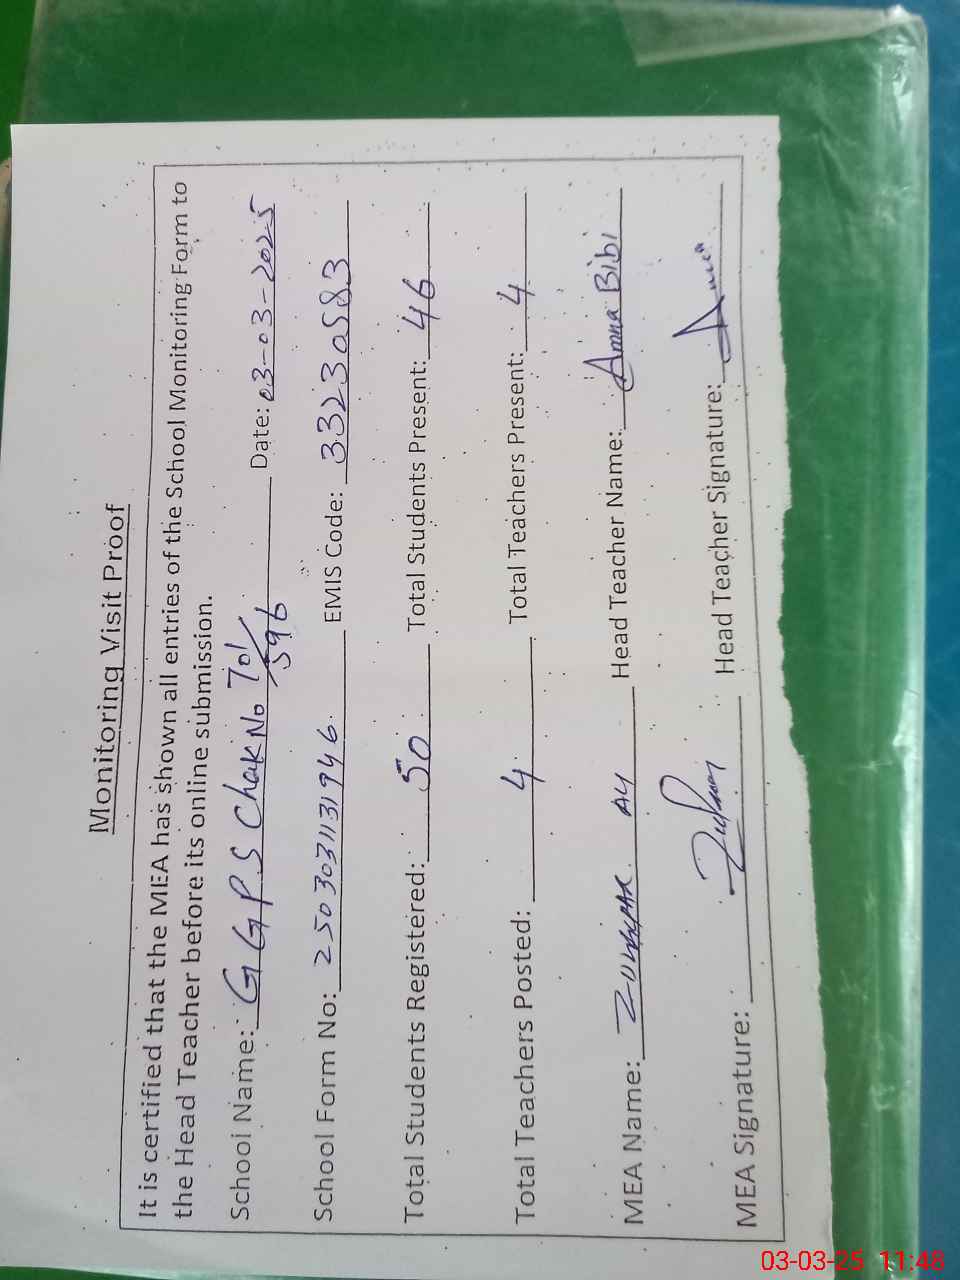 Monitoring Visit Proof
It is certified that the MEA has shown all entries of the School Monitoring Form to
the Head Teacher before its online submission.
School Name: G G P S Chak No 701/ Date: 03-03-2025
596
School Form No: 250303113 1946 EMIS Code: 33230583
Total Students Registered: 50 Total Students Present: 46
Total Teachers Posted: 4 Total Teachers Present: 4
MEA Name: Head Teacher Name: Amna Bibi
MEA Signature: Head Teacher Signature: Amna
03-03-25 11:48